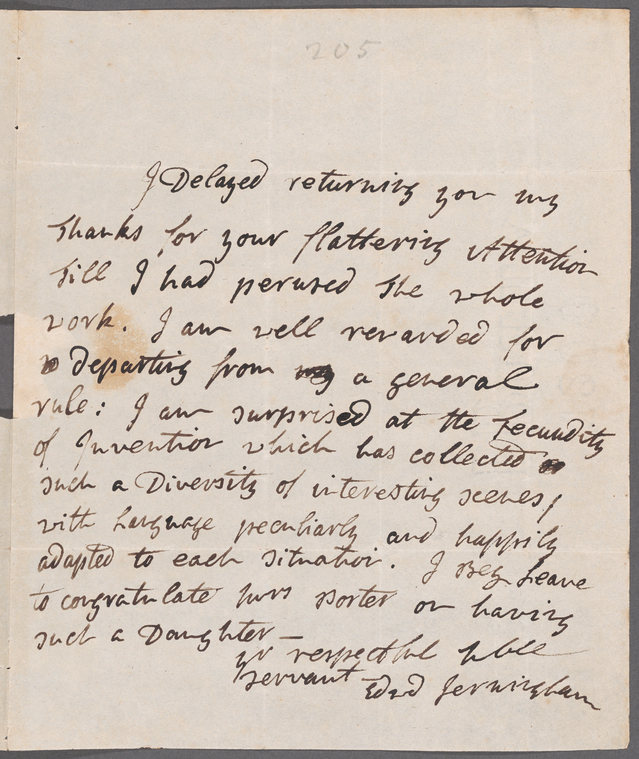 205
I Delayed returning you my
Thanks for your flattering Attention
Till I had perused The whole
work. I am well rewarded for
departing from a general
rule: I am surprised at the fecundity
of Invention which has collected
such a Diversity of interesting scenes,
with Language peculiarly and happily
adapted to each situation. I Beg Leave
to congratulate Porter on having
such a Daughter —
yr respectful hble
servant Edwd Jerningham